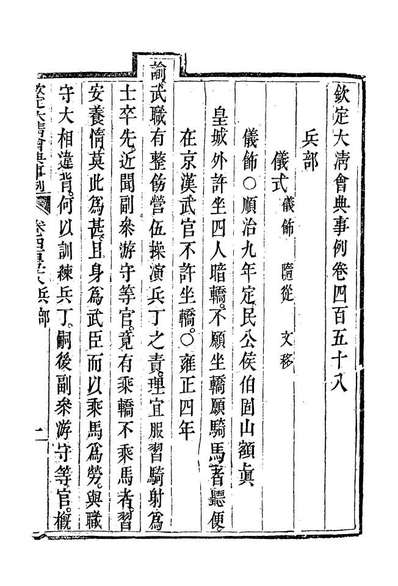 欽定大清會典事例卷四百五十八
兵部
儀式 儀飾 隨從 文移
儀飾○順治九年定民公侯伯固山額真
皇城外許坐四人暗轎不願坐轎願騎馬者聽便
在京漢武官不許坐轎○雍正四年
諭武職有整飭營伍操演兵丁之責理宜服習騎射為
士卒先近聞副參游守等官竟有乘轎不乘馬者習
安養惰莫此為甚且身為武臣而以乘馬為勞與職
守大相違背何以訓練兵丁嗣後副參游守等官概
欽定大清會典事例 卷四百五十八 兵部 一